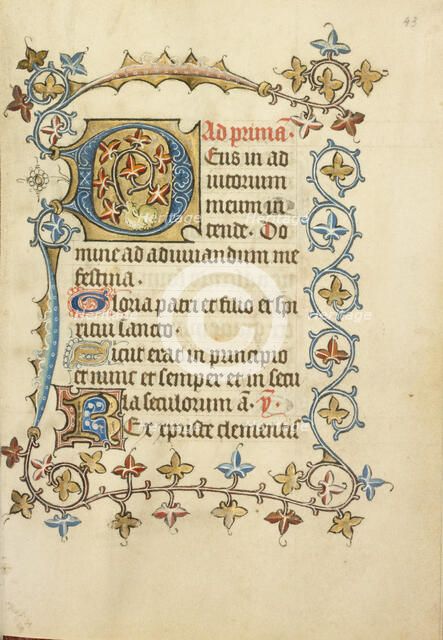 43
Ad prima
Deus in ad
iutorium
meum in
tende. Do
mine ad adiuuandum me
festina.
Gloria patri et filio et spi
ritui sancto.
Sicut erat in principio
et nunc et semper et in secu
la seculorum a. y
Rex christe clementis
Heritage
Heritage
Heritage
Heritage